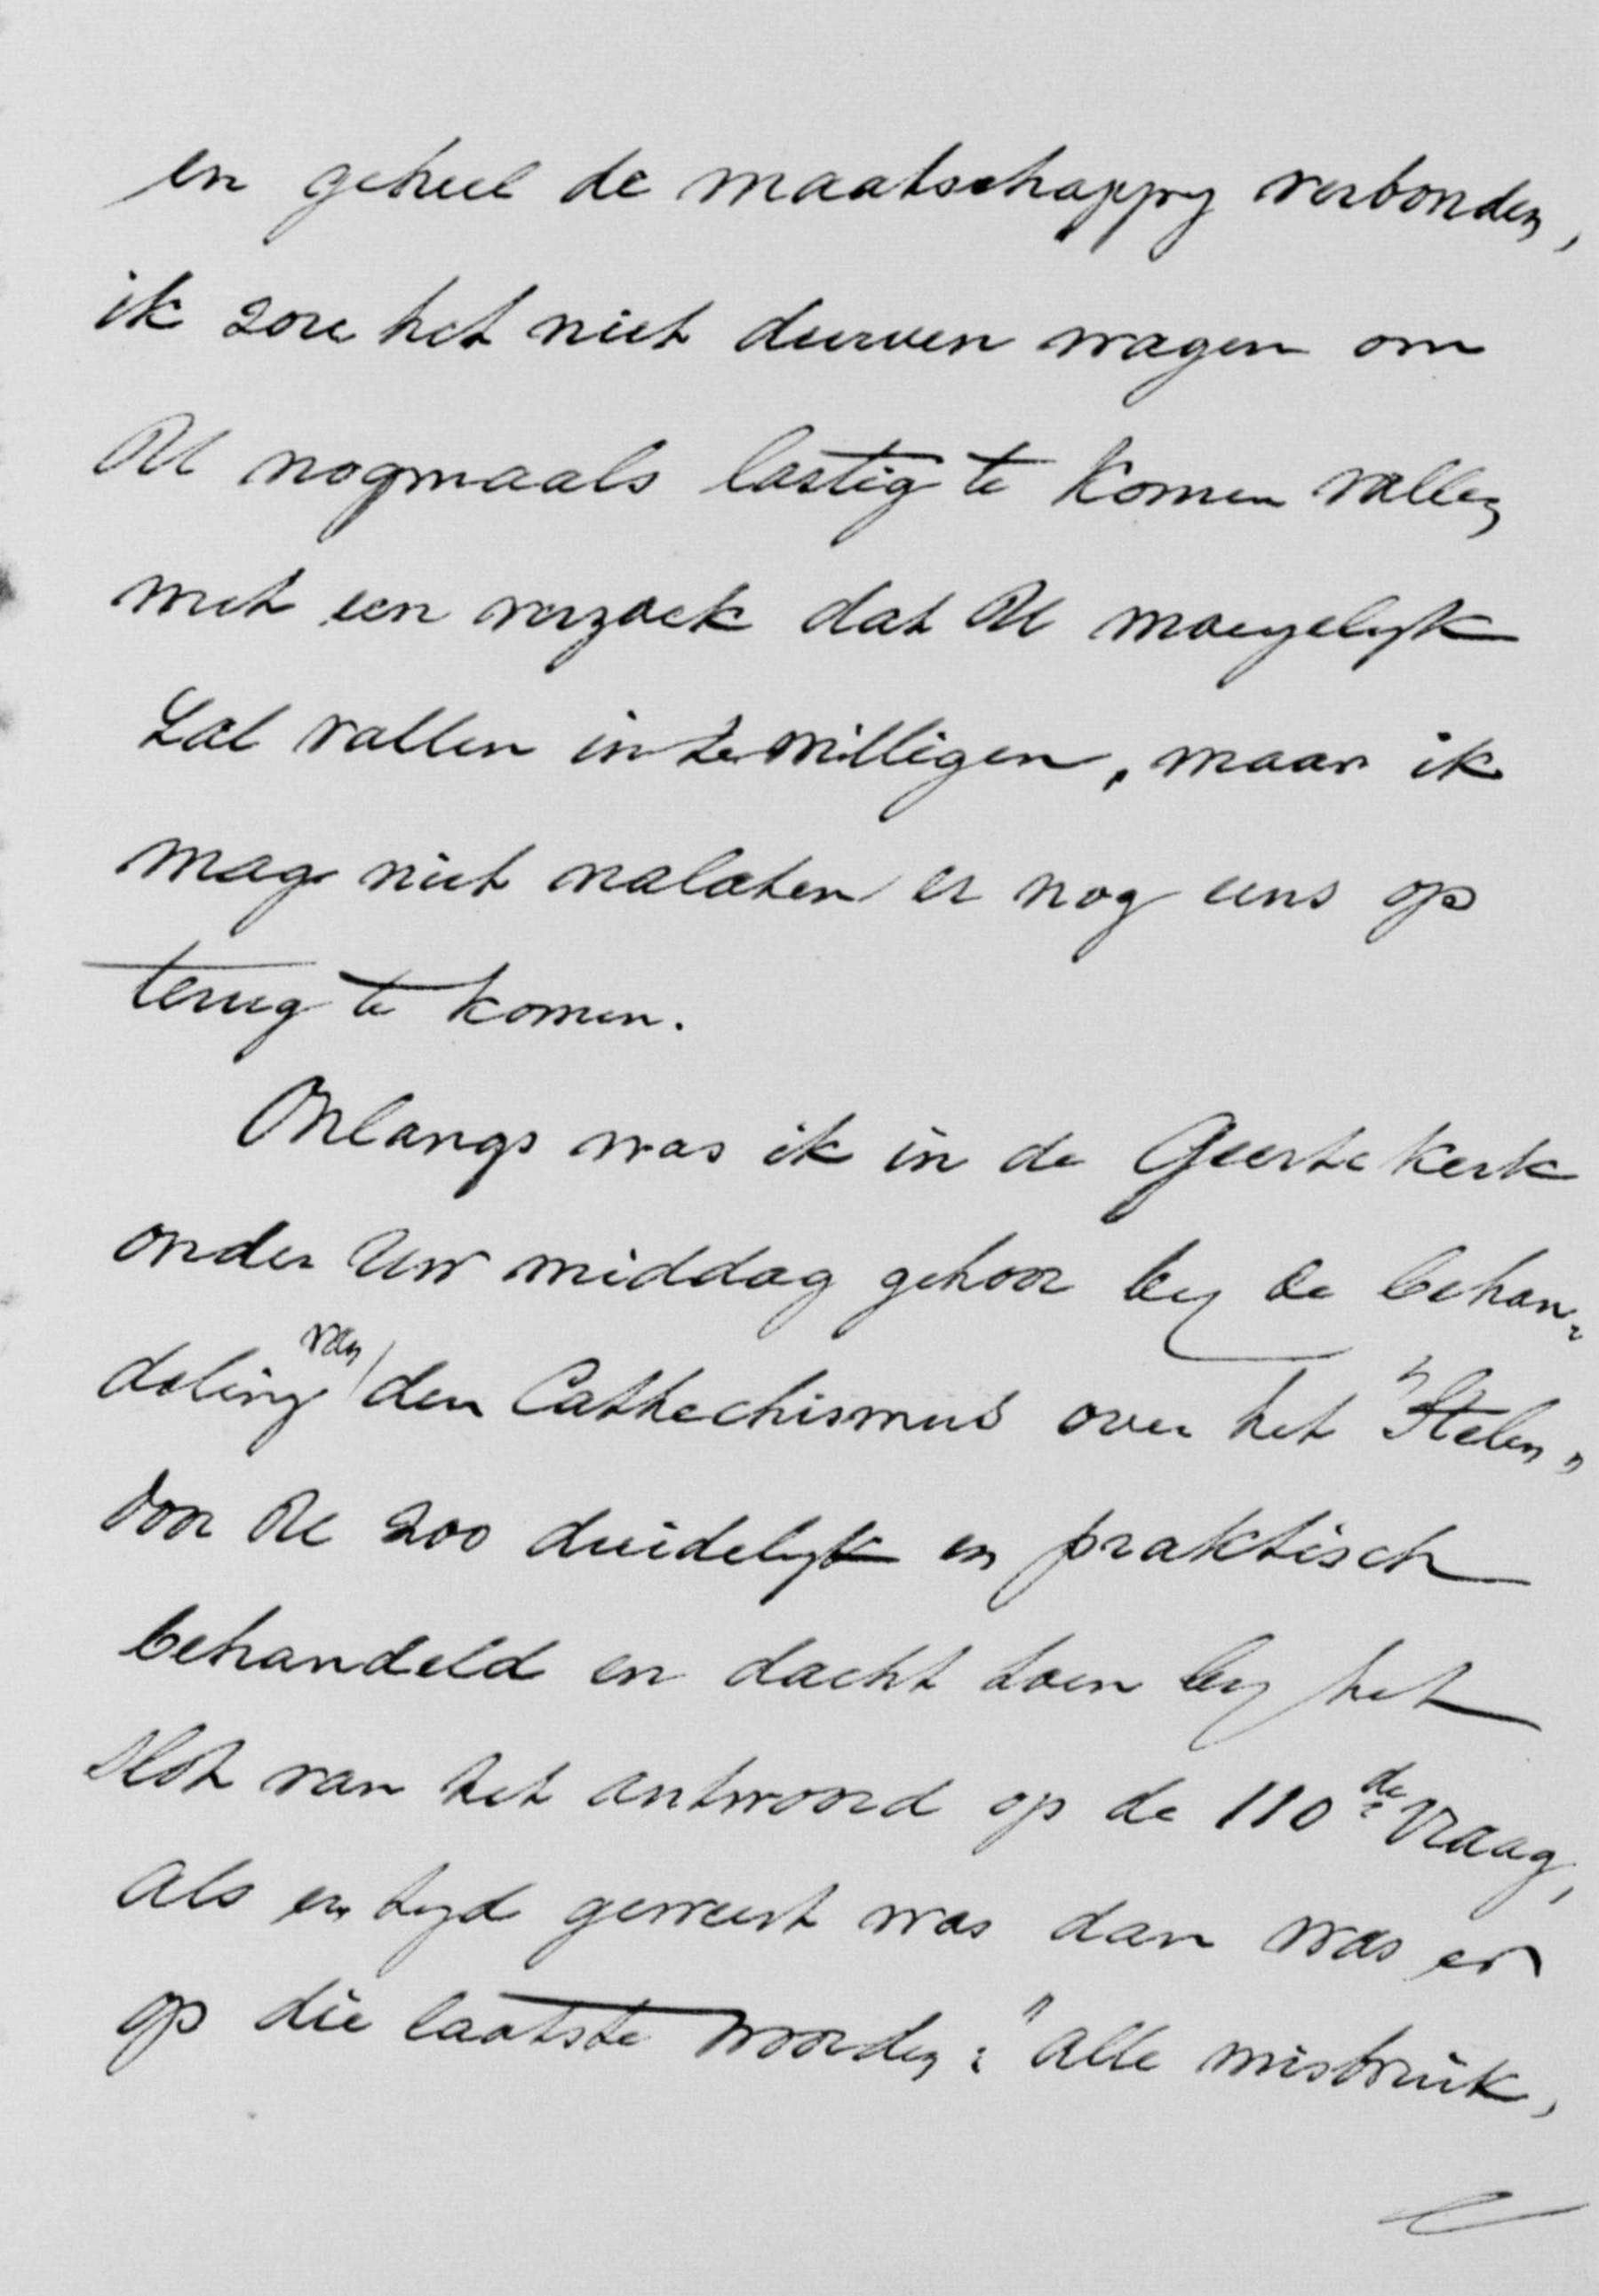 en geheel de maatschappy verbonden,
ik zou het niet durven wagen om
U nogmaals lastig te komen vallen
met een verzoek dat U moeyelyk
zal vallen in te willigen, maar ik
mag niet nalaten er nog eens op
terug te komen.
Onlangs was ik in de Geertekerk
onder Uw middag gehoor by de behan=
deling van den Cathechismus over het "Stelen"
door U zoo duidelyk en praktisch
behandeld en dacht toen by het
slot van het antwoord op de 110de Vraag,
als er tyd geweest was dan was er
op die laatste woorden: "alle misbruik,